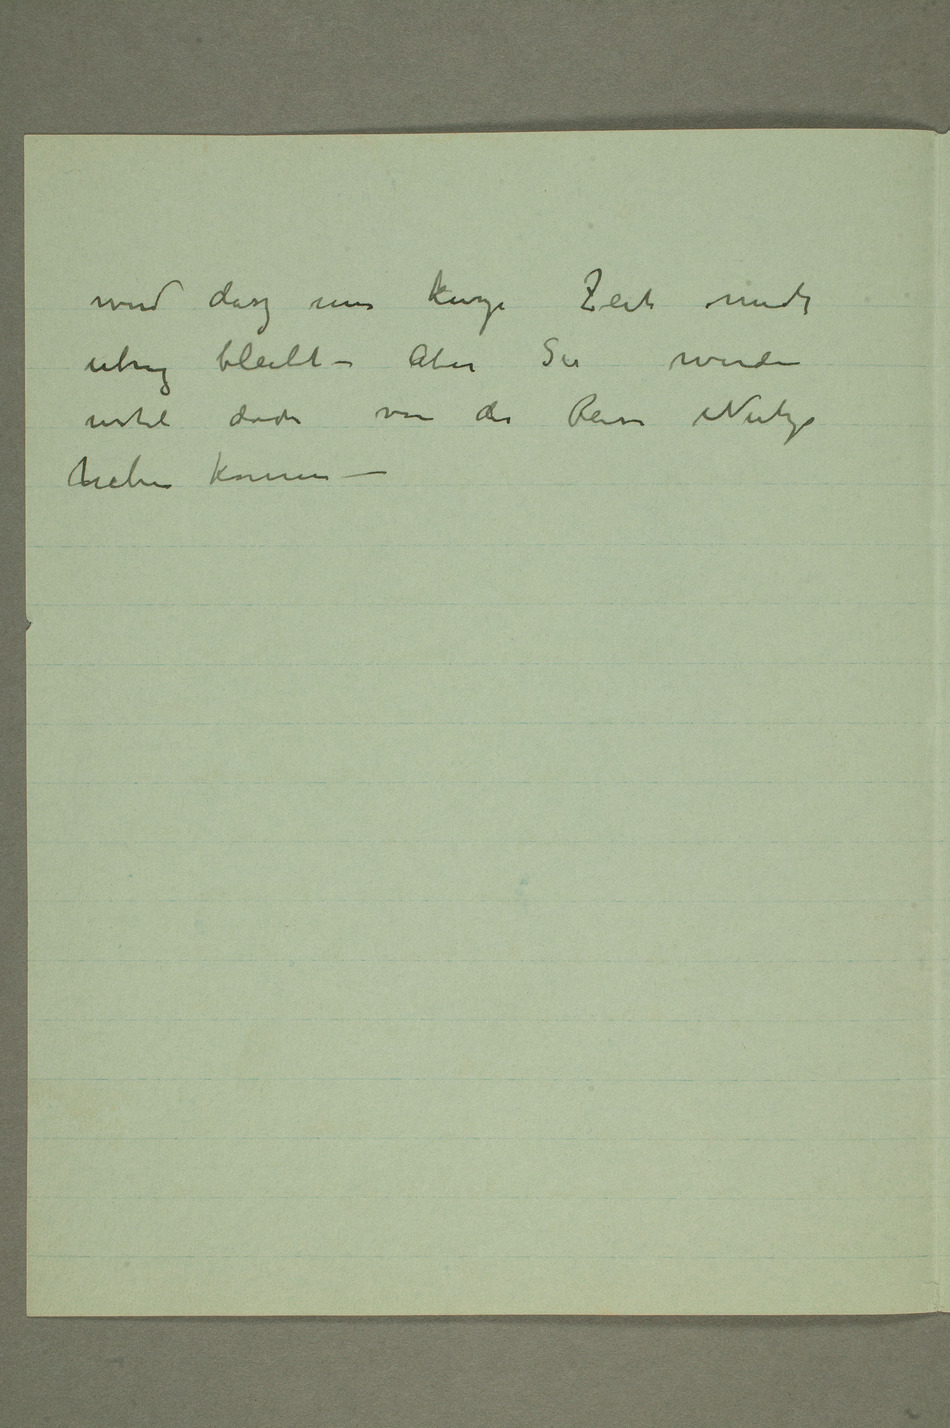 wird dasz nur kurze Zeit mich
übrig bleibt – Aber Sie werden
wohl doch von der Reise Nutze
haben können –